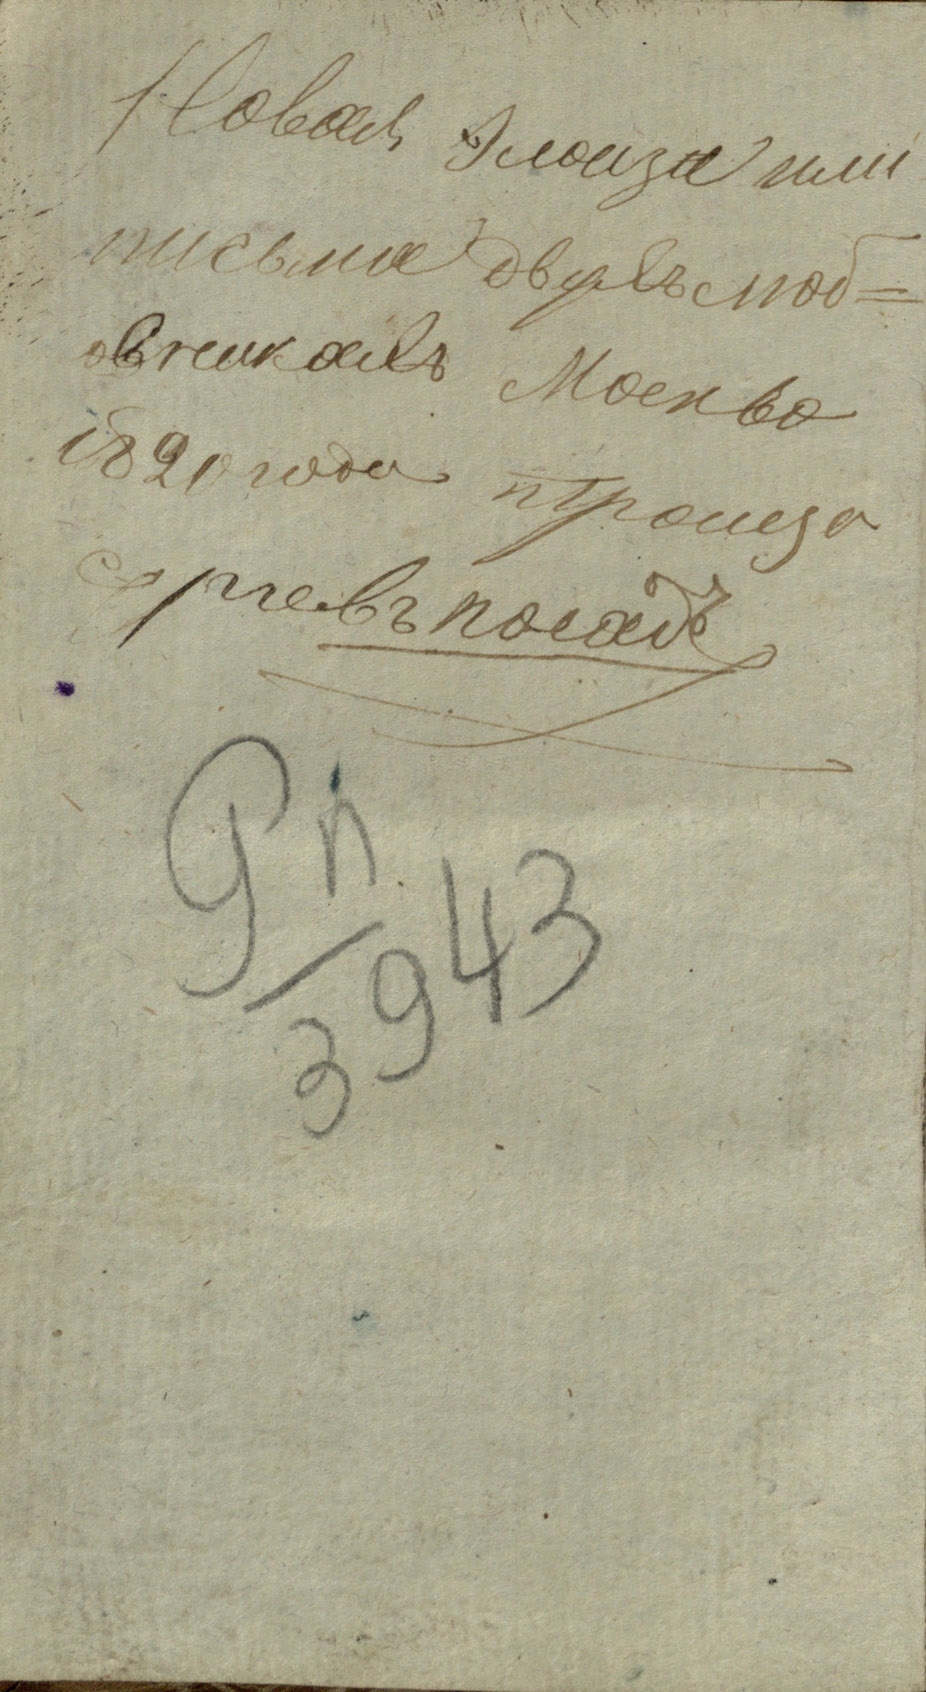 Новая Элоиза или
письма двухъ люб=
овникахъ Москва
1820 года
сергиевъ посадъ
Рп
/3943